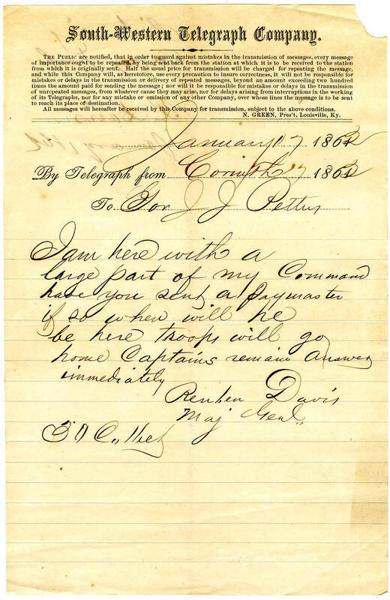 South-Western Telegraph Company.
THE PUBLIC are notified, that in order to guard against mistakes in the transmission of messages, every message
of importance ought to be repeated, by being sent back from the station at which it is to be received to the station
from which it is originally sent. Half the usual price for transmission will be charged for repeating the message,
and while this Company will, as heretofore, use every precaution to insure correctness, it will not be responsible for
mistakes or delays in the transmission or delivery of repeated messages, beyond an amount exceeding two hundred
times the amount paid for sending the message; nor will it be responsible for mistakes or delays in the transmission
of unrepeated messages, from whatever cause they may arise, nor for delays arising from interruptions in the working
of its Telegraphs, nor for any mistake or omission of any other Company, over whose lines the message is to be sent
to reach its place of destination.
All messages will hereafter be received by this Company for transmission, subject to the above conditions.
N. GREEN, Pres't, Louisville, Ky.
January 17 1862
By Telegraph from Corinth 17 1862
To Gov J J Pettus
I am here with a
large part of my Command
have you sent a paymaster
if so when will he
be here troops will go
home Captains remain Answer
immediately
Reuben Davis
Maj Genl
Collect